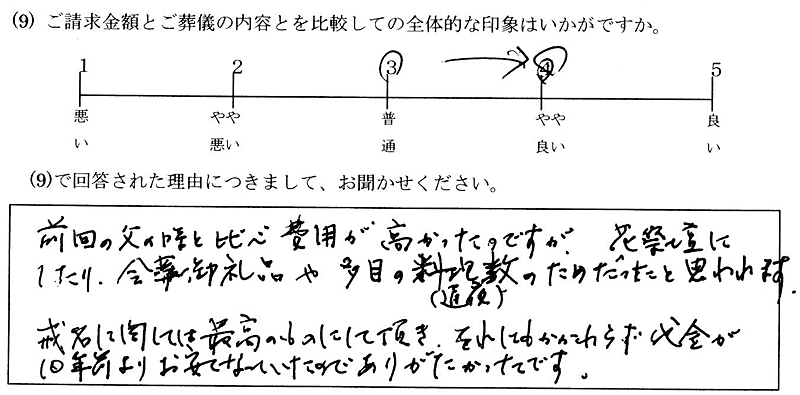 (9) ご請求金額とご葬儀の内容とを比較しての全体的な印象はいかがですか。
1 2 3 4 5
悪い やや悪い 普通 やや良い 良い
(9)で回答された理由につきまして、お聞かせください。
前回の父の時と比べ費用が高かったのですが、花祭壇に
したり、会葬御礼品や多目の料理数のためだったと思われます。
(通夜)
戒名に関しては最高のものにして頂き、それにもかかわらず代金が
10年前よりお安くなっていたのでありがたかったです。